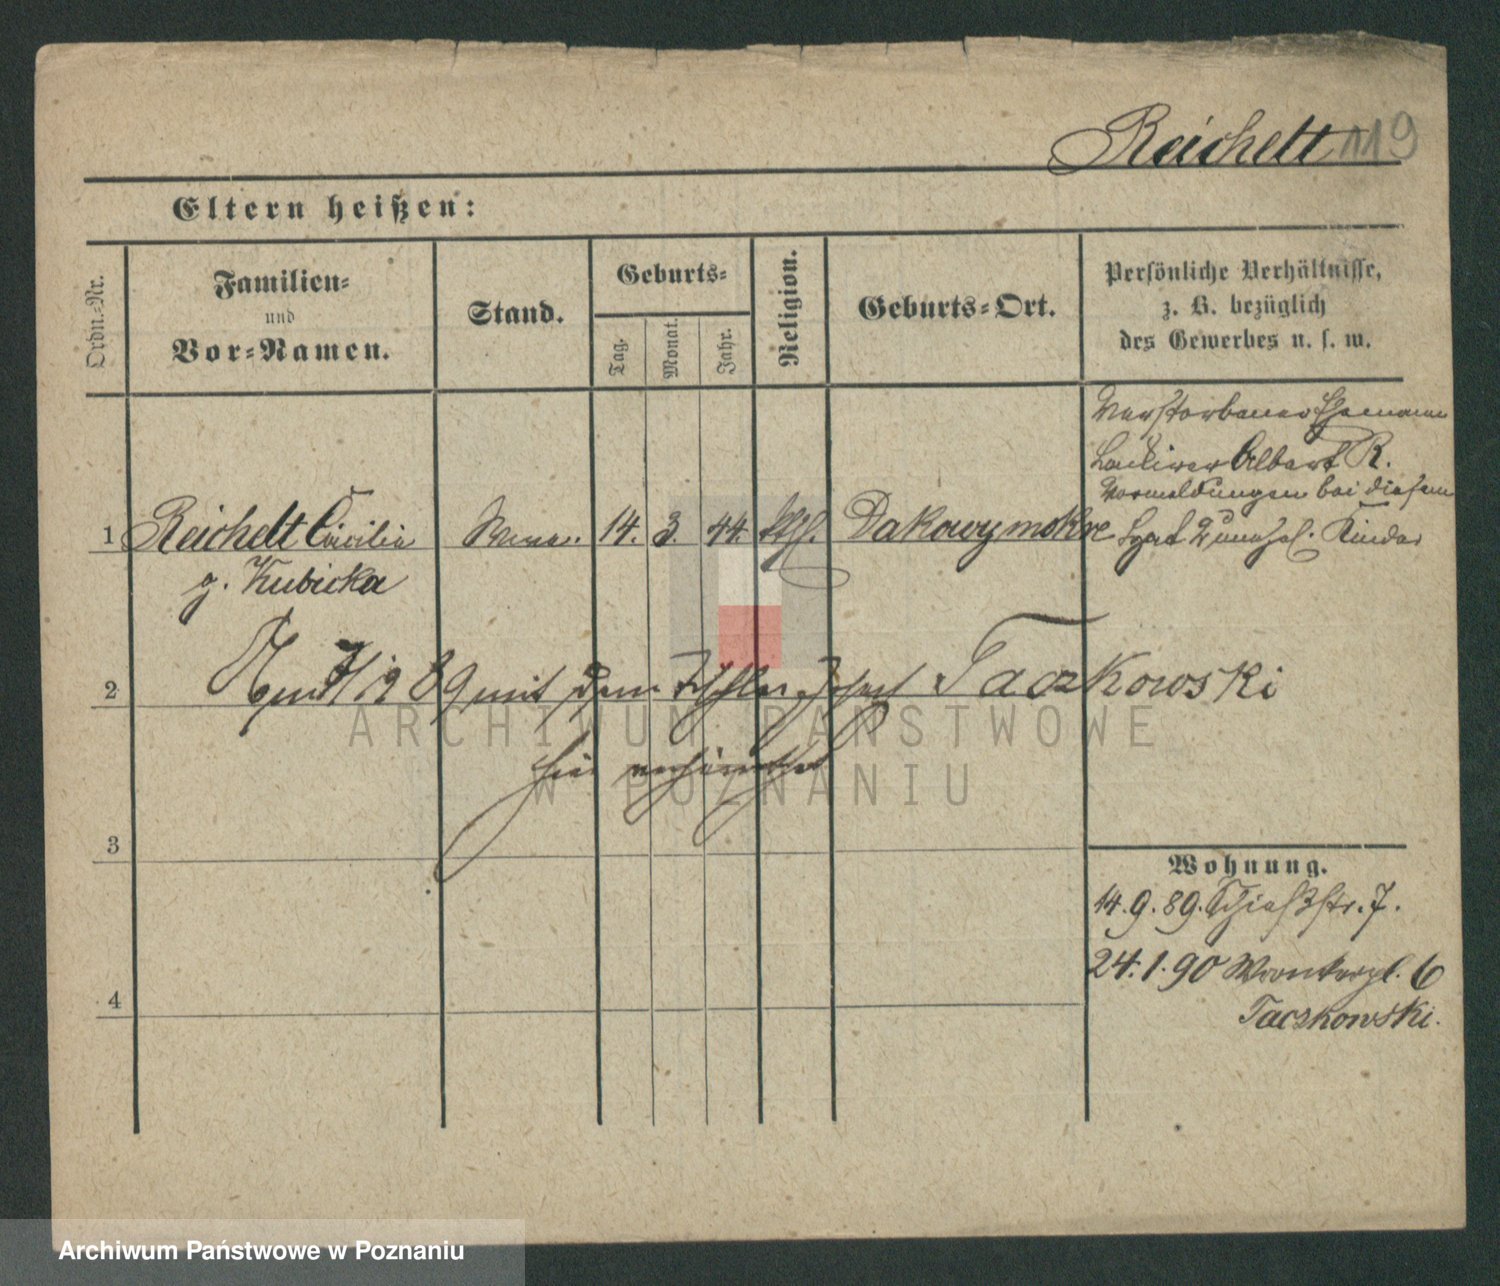 Reichelt 119
Eltern heißen:
Ordn.-Nr.
Familien-
und
Vor-Namen.
Stand.
Geburts-
Tag.
Monat.
Jahr.
Religion.
Geburts-Ort.
Persönliche Verhältnisse,
z. B. bezüglich
des Gewerbes u. s. w.
Verstorbener Ehemann
Albert R.
Vormeldungen bei diesem
1 Reichelt Cäcilie 14. 3. 44. kth. Dakowy mokre hat Kinder
g. Kubicka
2 Am 89 mit dem Tischler Josef Taczkowski
hier verheirathet
3
4
Wohnung.
14.9.89. Schießstr. 7.
24.1.90 Wronkerpl. 6
Taczkowski.
ARCHIWUM PAŃSTWOWE
W POZNANIU
Archiwum Państwowe w Poznaniu